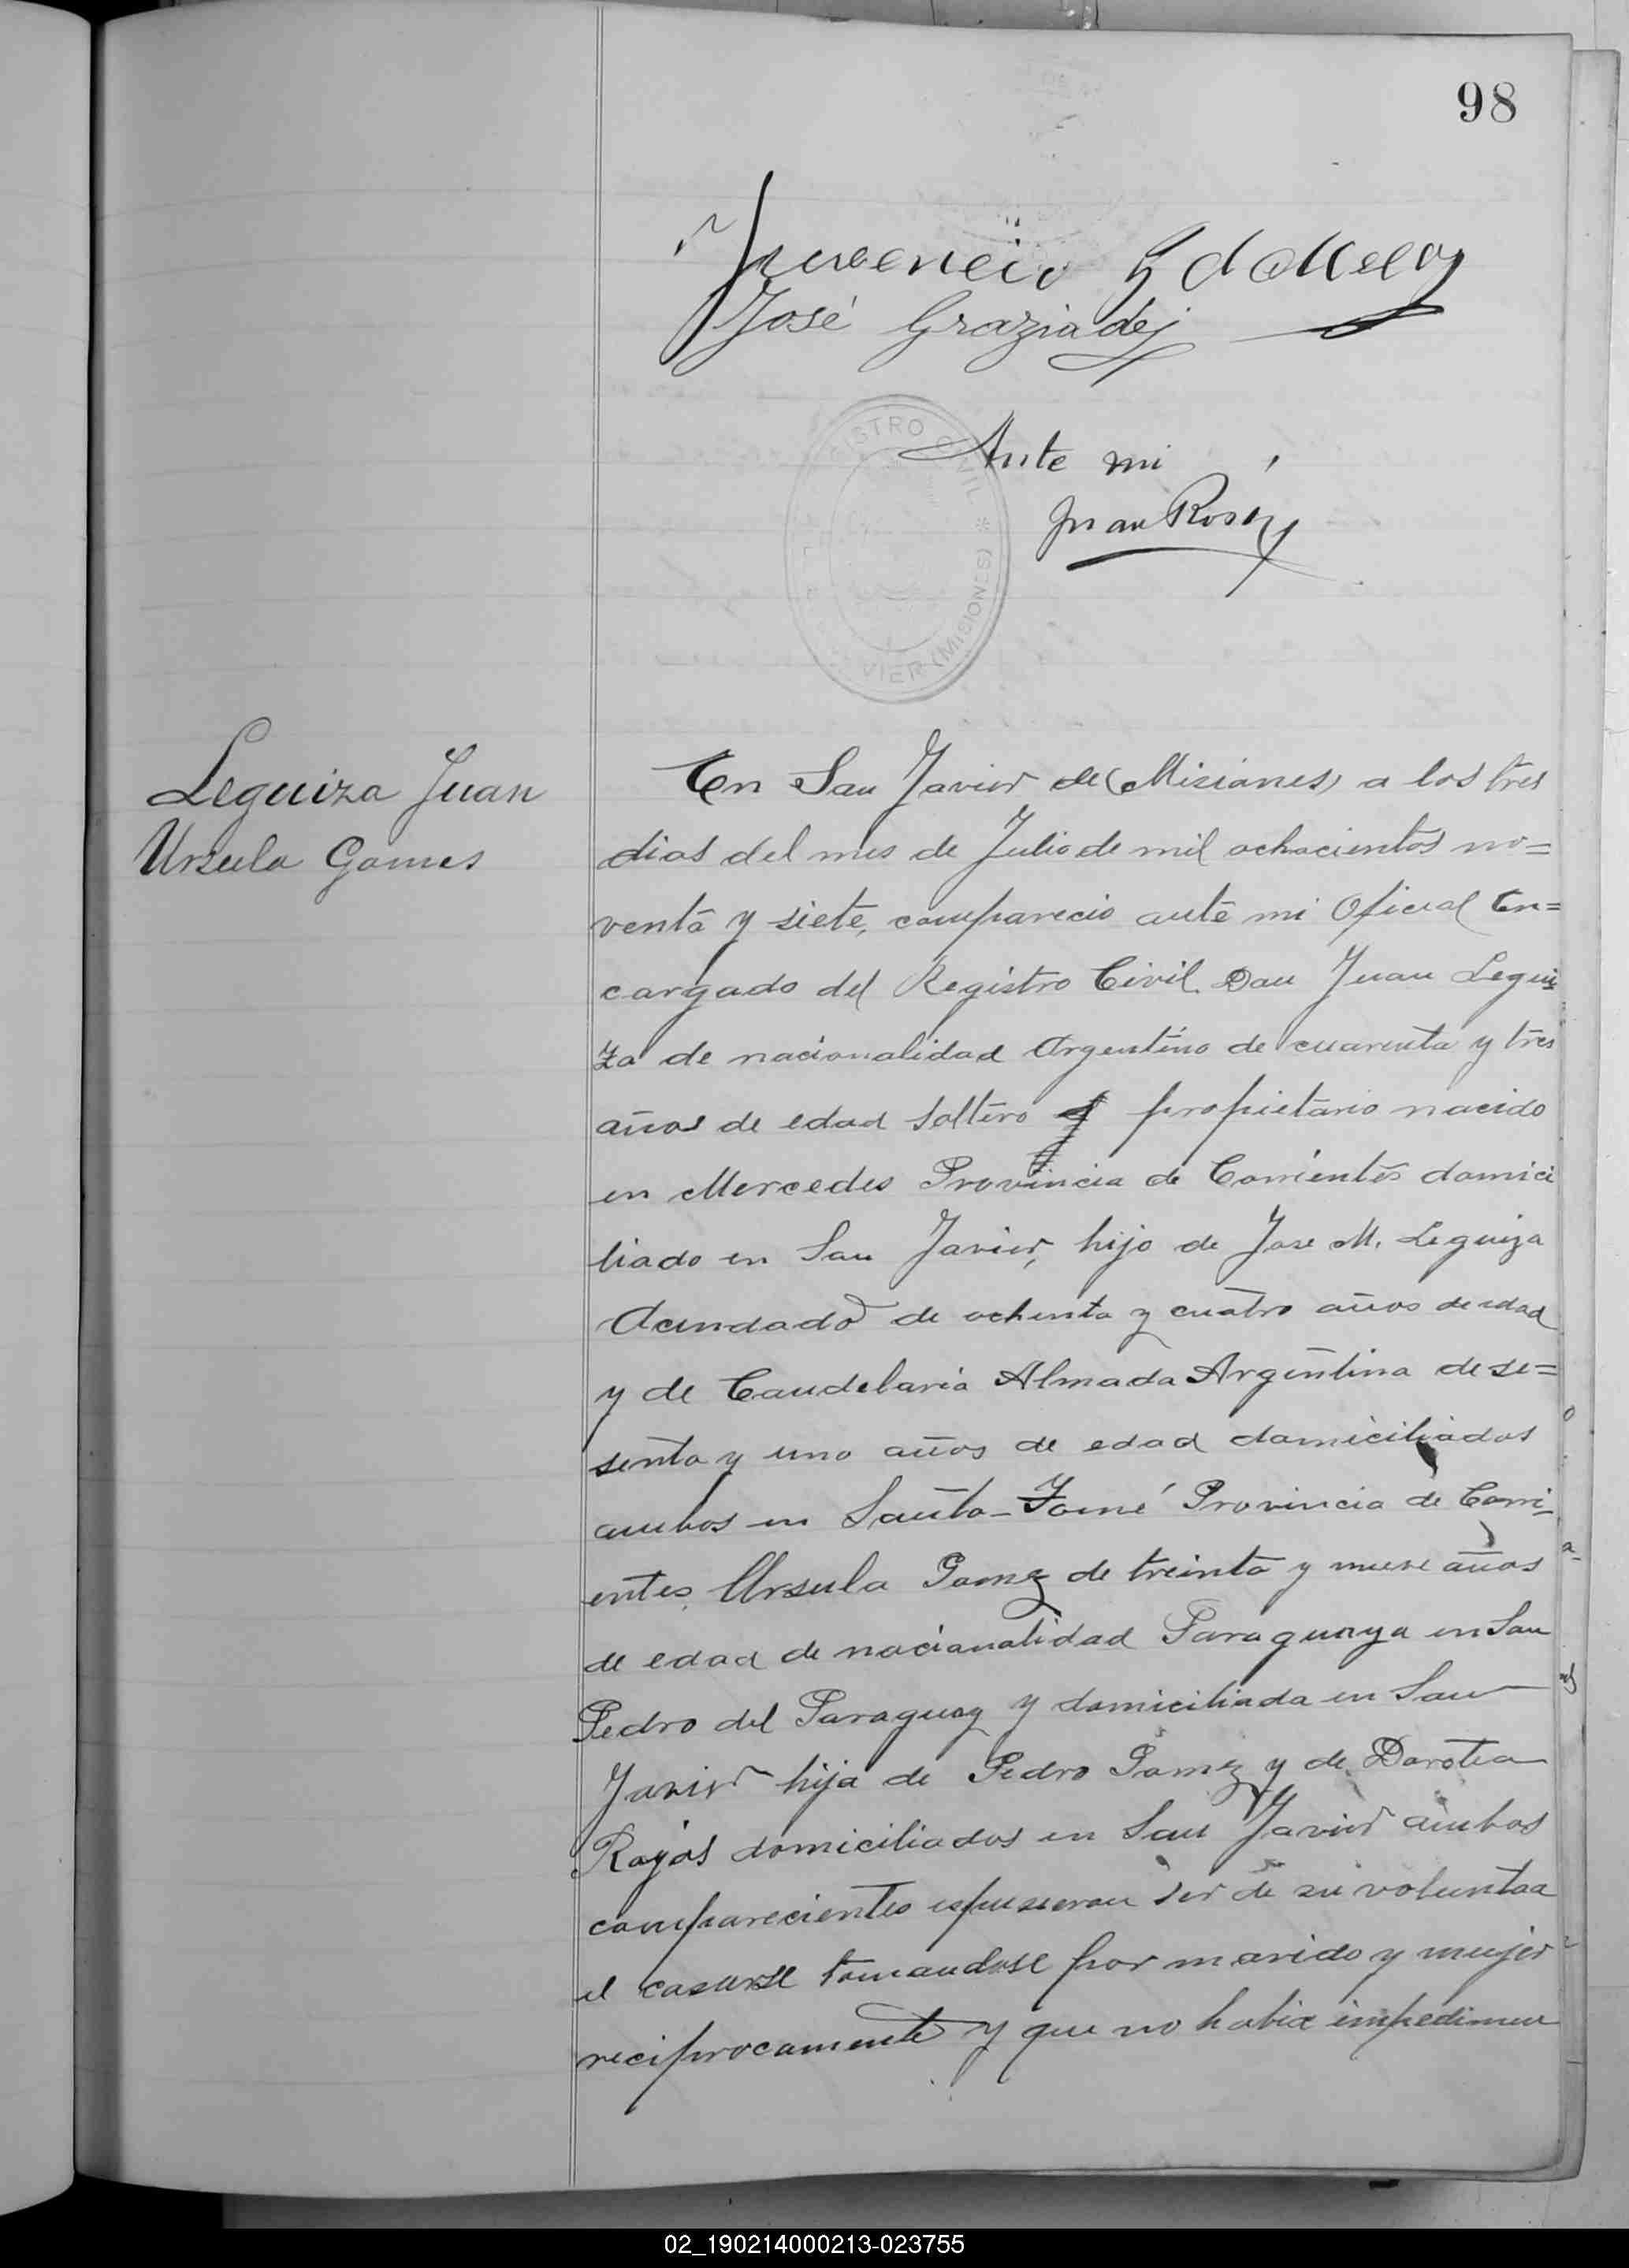 98
José Graziadej
REGISTRO CIVIL * VIER (MISIONES)
Ante mi
Juan Rosa
Leguiza Juan
Ursula Gomes
En San Javier de (Misiones) a los tres
dias del mes de Julio de mil ochocientos no=
venta y siete, comparecio ante mi Oficial En=
cargado del Registro Civil Don Juan Legui
za de nacionalidad Argentino de cuarenta y tres
años de edad soltero propietario nacido
en Mercedes Provincia de Corrientes domici
liado en San Javier, hijo de Jose M. Leguiza
Acendado de ochenta y cuatro años de edad
y de Candelaria Almada Argentina de se=
senta y uno años de edad domiciliados
ambos en Santo-Tomé Provincia de Corri=
entes, Ursula Gomez de treinta y nueve años
de edad de nacionalidad Paraguaya en San
Pedro del Paraguay y domiciliada en San
Javier hija de Pedro Gomez y de Dorotea
Rojas domiciliados en San Javier ambos
comparecientes espusieron ser de su voluntad
el casarse tomandose por marido y mujer
reciprocamente y que no habia impedimen
02_190214000213-023755